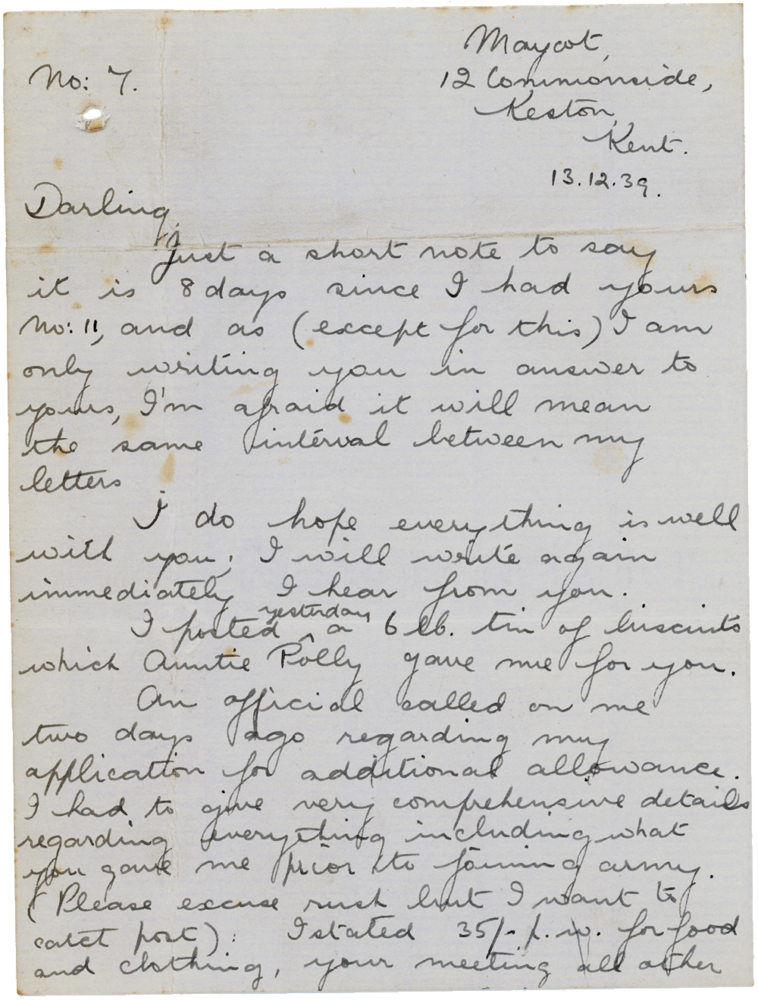 No: 7.
Maycot,
12 Commonside,
Keston,
Kent.
13.12.39.
Darling,
Just a short note to say
it is 8 days since I had yours
No: 11, and as (except for this) I am
only writing you in answer to
yours, I'm afraid it will mean
the same interval between my
letters
I do hope everything is well
with you; I will write again
immediately I hear from you.
I posted yesterday a 6 lb. tin of biscuits
which Auntie Polly gave me for you.
An official called on me
two days ago regarding my
application for additional allowance.
I had to give very comprehensive details
regarding everything including what
you gave me prior to joining army.
(Please excuse rush but I want to
catch post): I stated 35/- p.w. for food
and clothing, your meeting all other